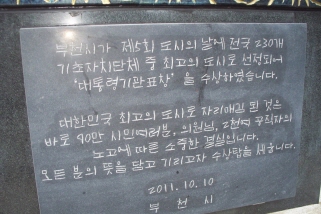 부천시가 제5회 도시의 날에 전국 230개
기초자치단체 중 최고의 도시로 선정되어
"대통령기관표창"을 수상하였습니다.
대한민국 최고의 도시로 자리매김 된 것은
바로 90만 시민여러분, 의원님, 2천여 공직자의
노고에 따른 소중한 결실입니다.
모든 분의 뜻을 담고 기리고자 수상탑을 세웁니다.
2011.10.10
부천시